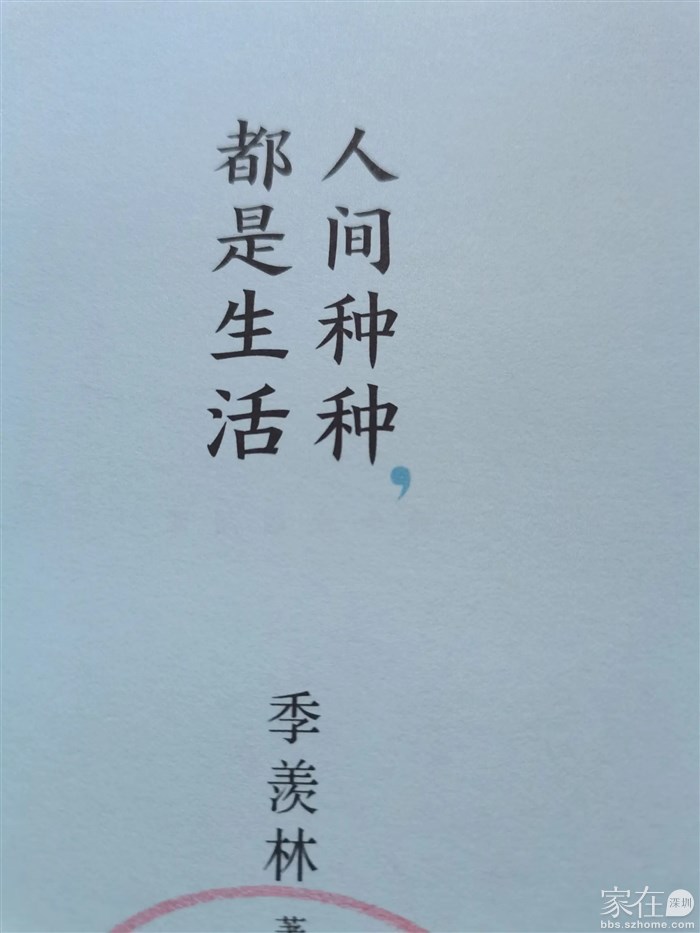 人间种种，
都是生活
季羡林
著
家在深圳
bbs.szhome.com